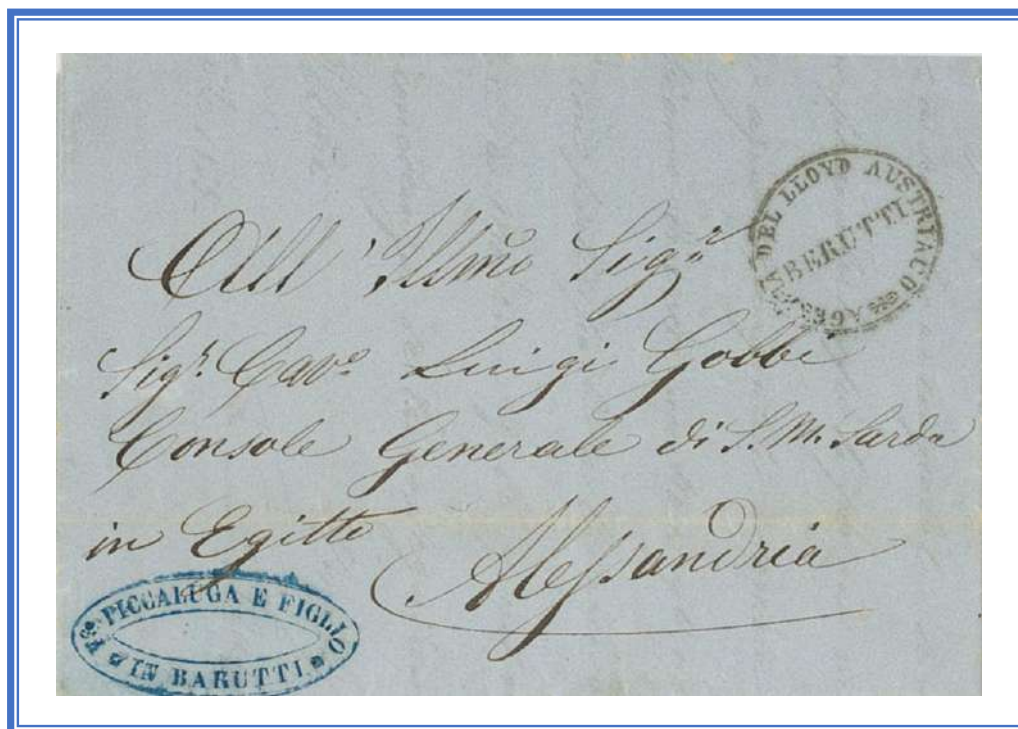 AGENZIA DEL LLOYD AUSTRIACO
BERUTTI
All' Illmo Sigr
Sigr Cavre Luigi Gobbi
Console Generale di S. M. Sarda
in Egitto
Alessandria
Fco PICCALUGA E FIGLIO
IN BARUTTI